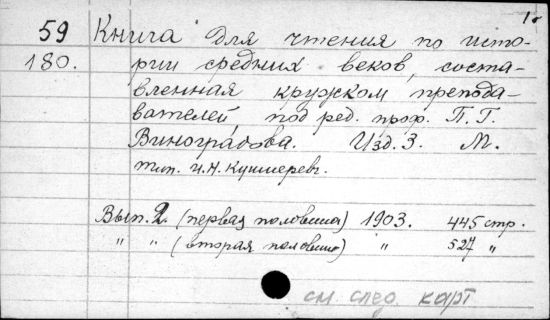 1
59 Книга для чтения по исто-
180. рии средних веков, соста-
вленная кружком препода-
вателей, под ред. проф. П. Г.
Виноградова. Изд. 3. М.
тип. И.Н. Кушнерев.
Вып. 2. (первая половина) 1903. 445 стр.
" " (вторая половина) " 527 "
см. след. карт